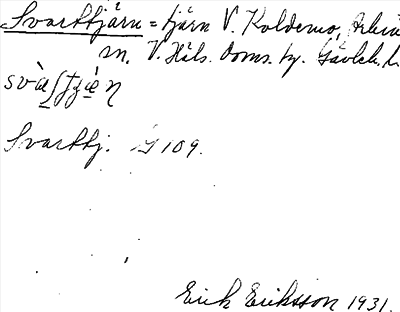 Svarttjärn = tjärn V. Koldemo, Arbrå
sn. V. Häls. doms. hg. Gävleb. l.
Svarttj. G 109.
Erik Eriksson 1931.